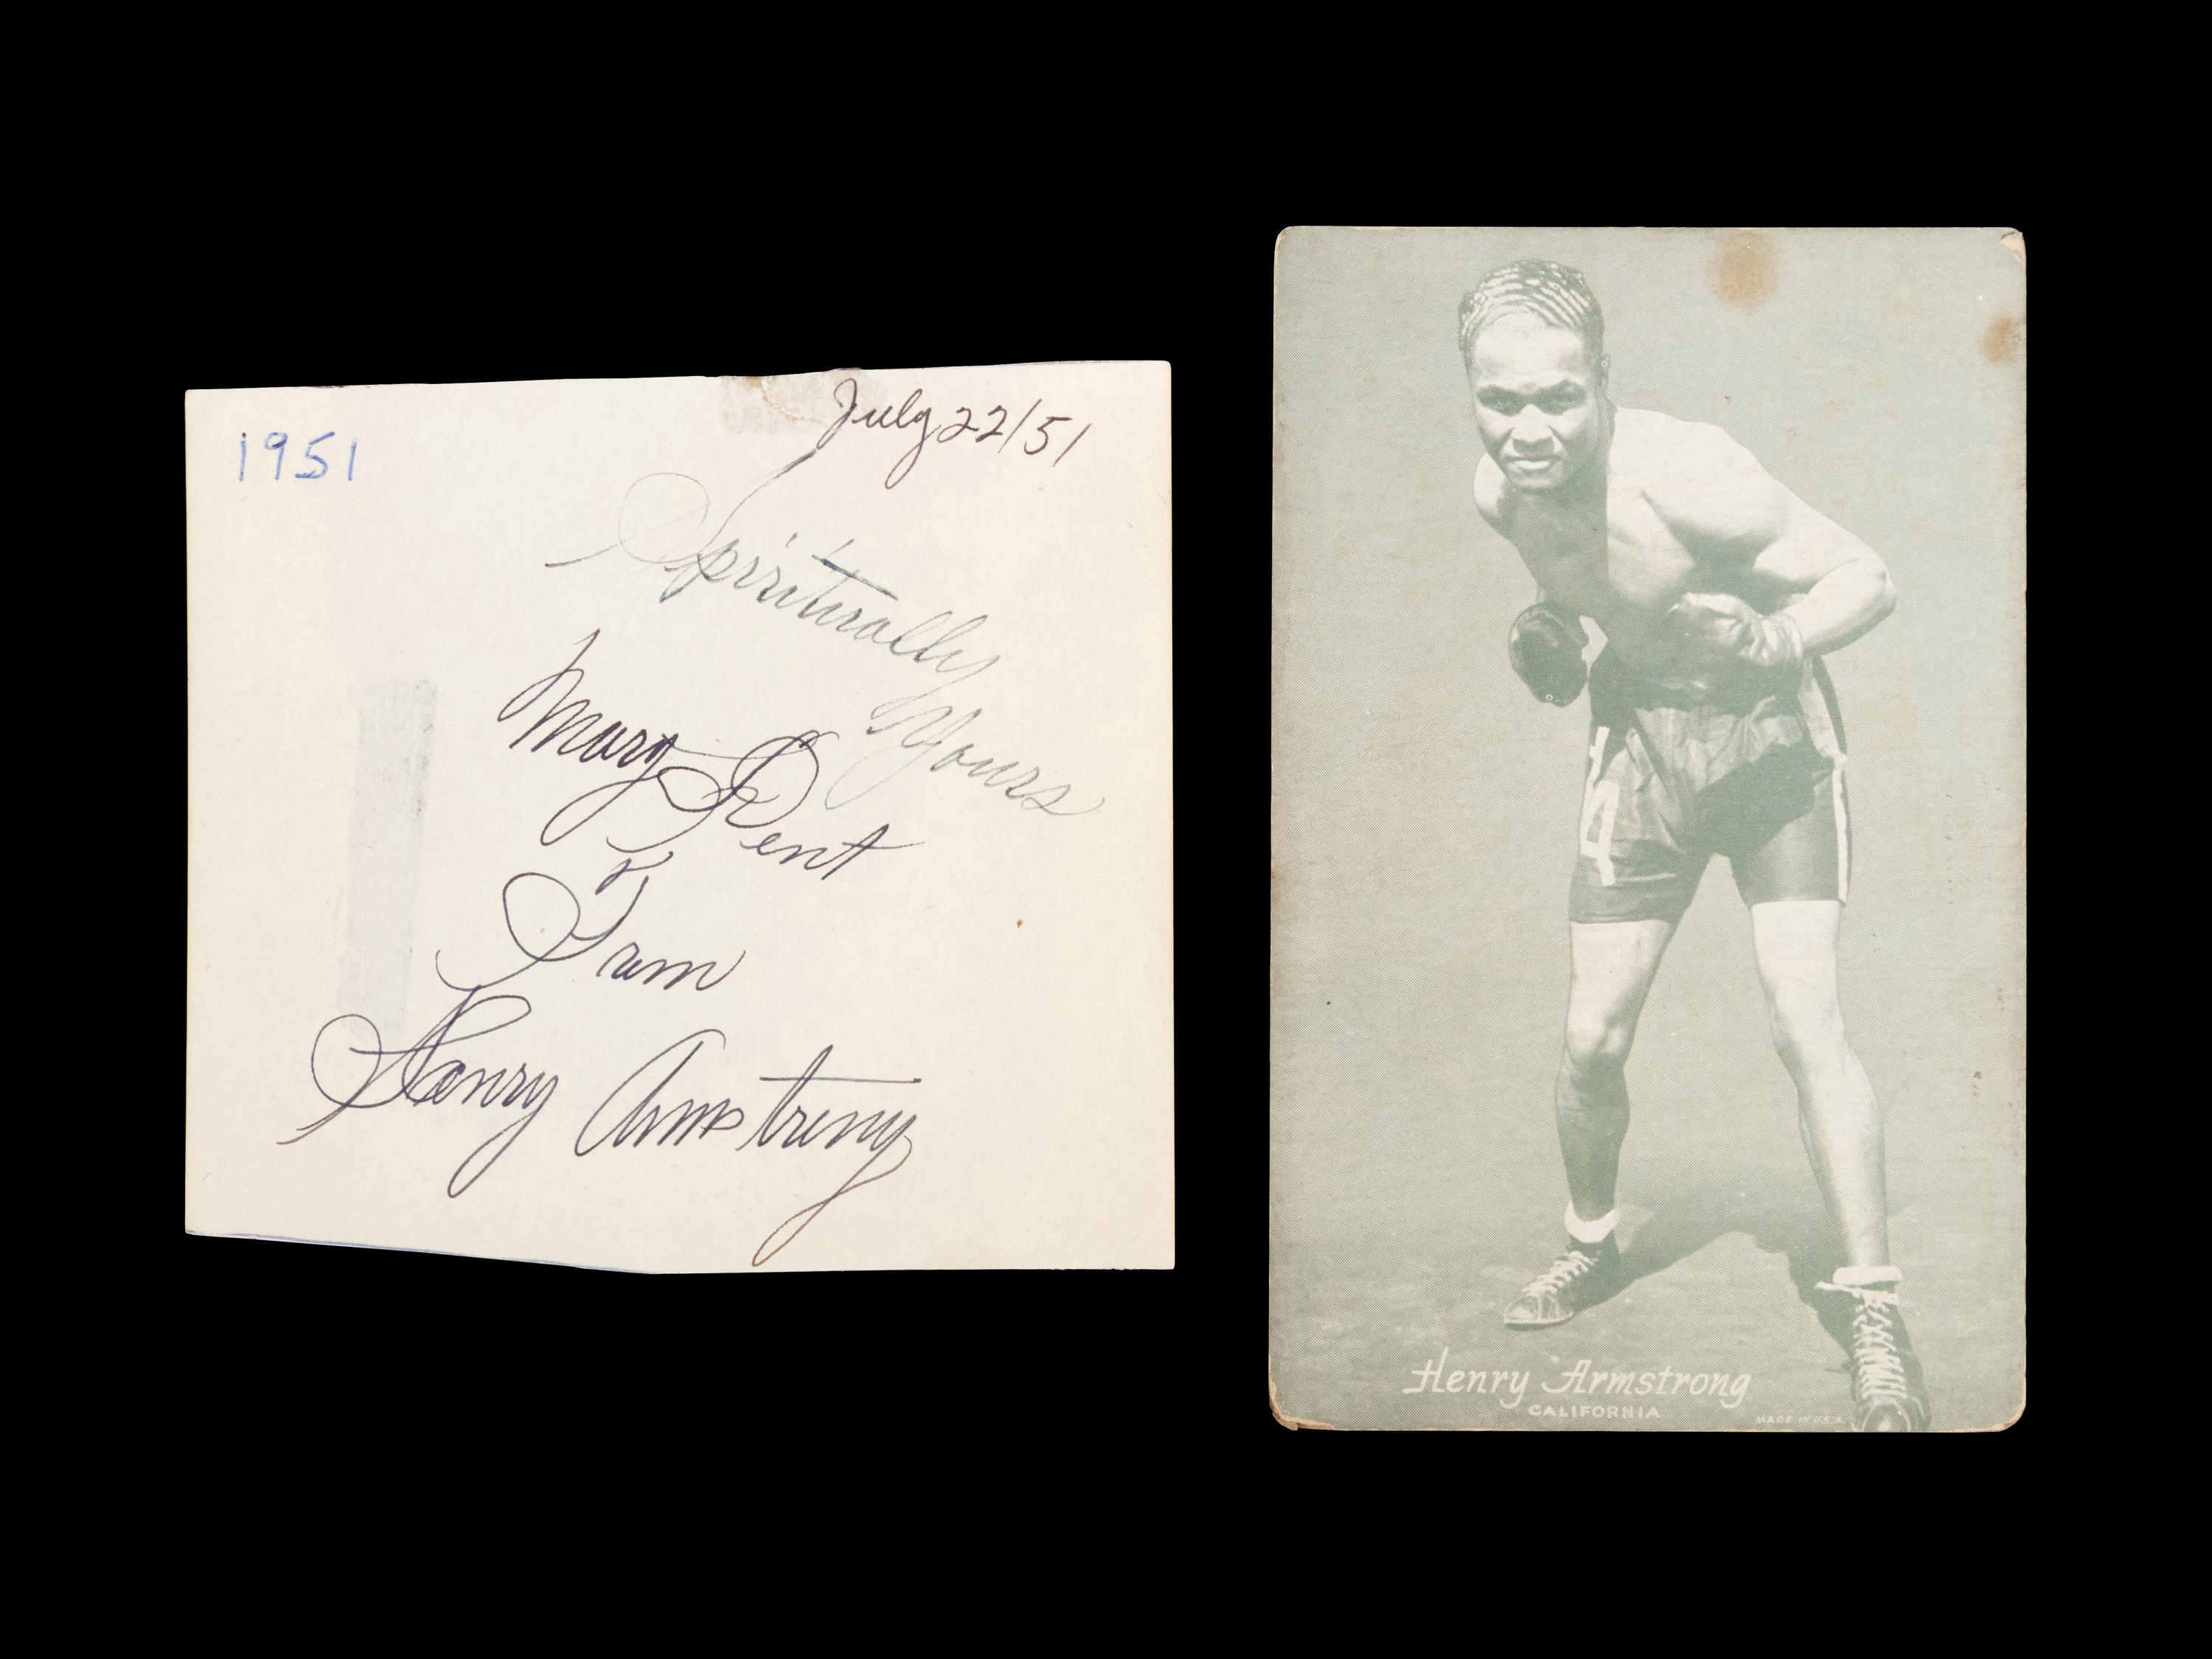 1951
July 22/51
Spiritually
Yours
Mary Dent
From
Henry Armstrong
Henry Armstrong
CALIFORNIA
MADE IN U.S.A.